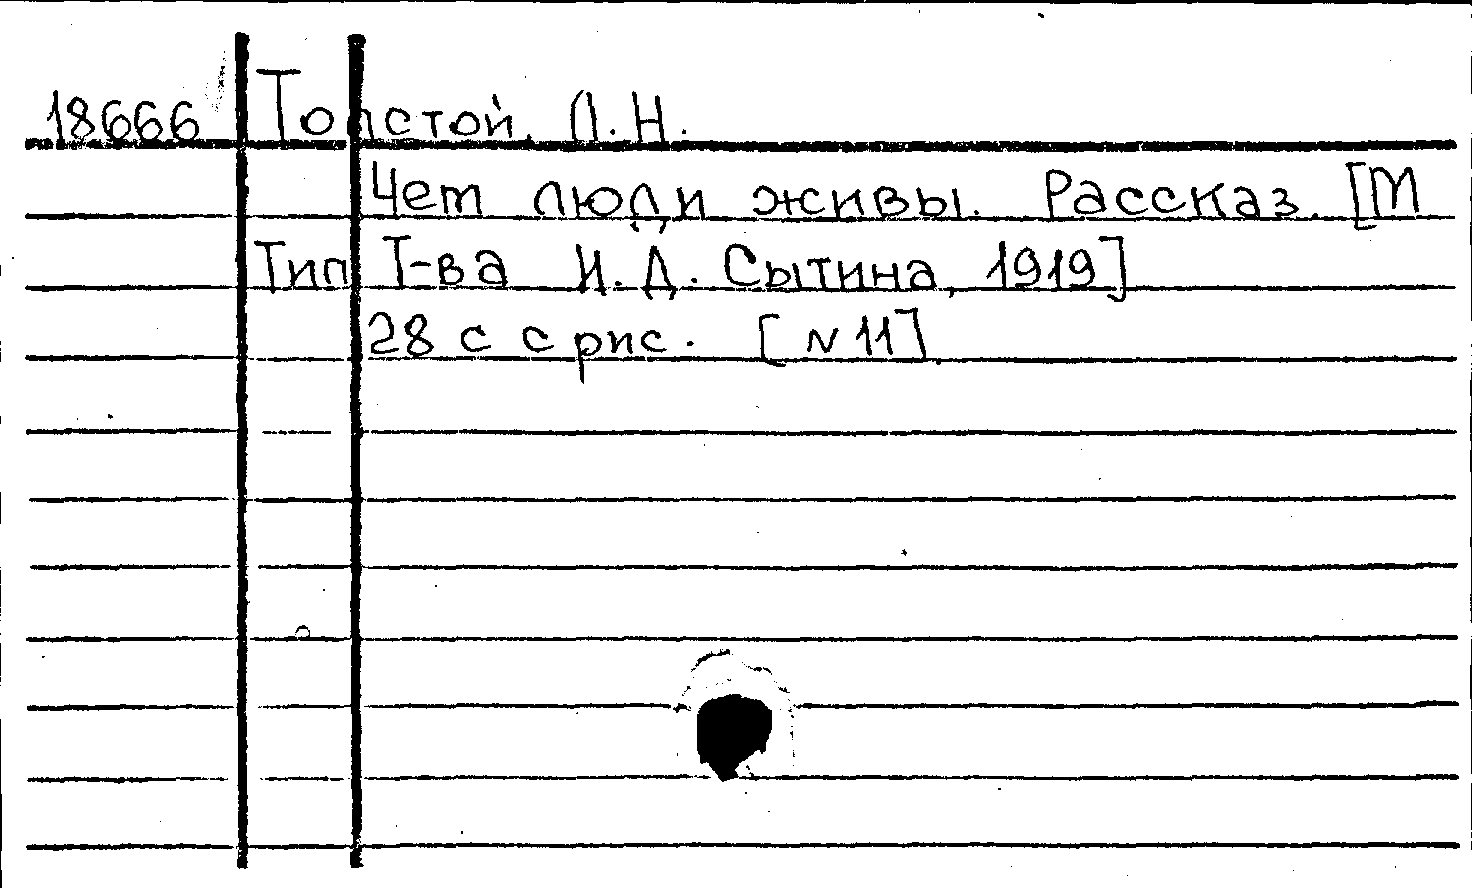 18666 Толстой, Л. Н.
Чем люди живы. Рассказ. [М
Тип Т-ва И. Д. Сытина, 1919]
28 с с рис. [N 11]